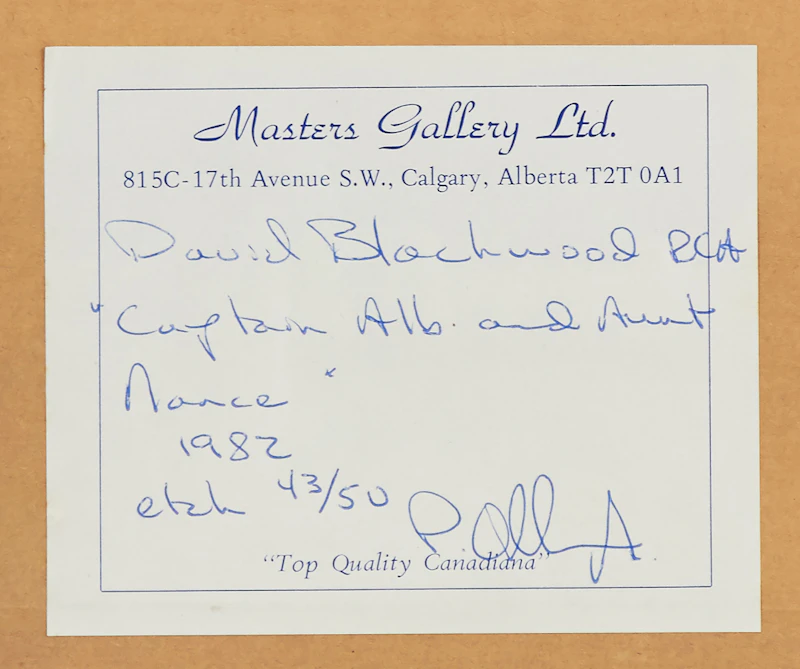 Masters Gallery Ltd.
815C-17th Avenue S.W., Calgary, Alberta T2T 0A1
David Blackwood RCA
"Captain Alb. and Aunt
Nance"
1982
etch 43/50
"Top Quality Canadiana"